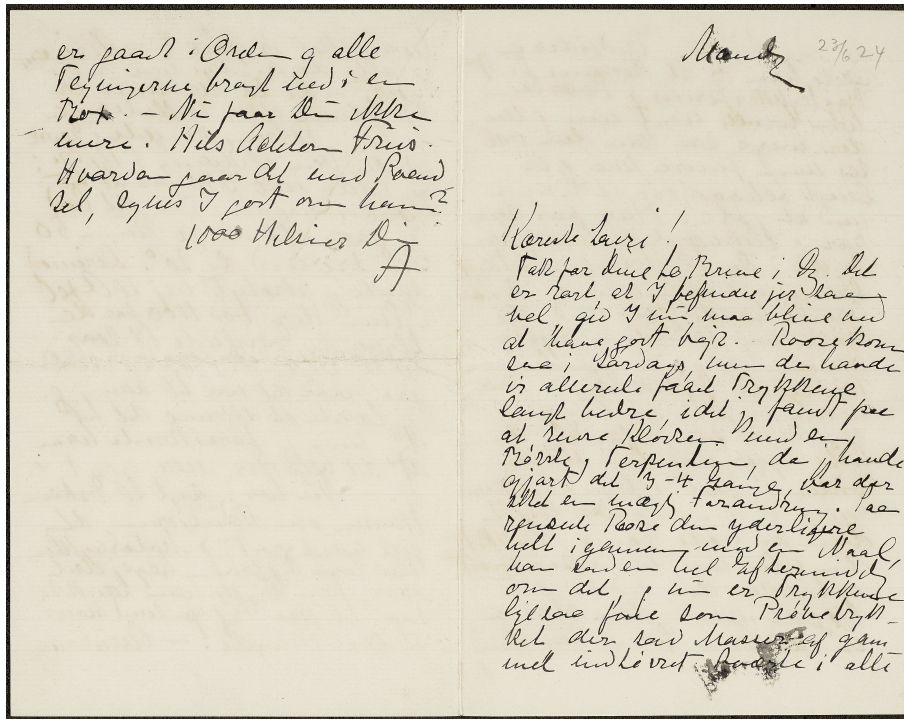 er gaaet i Orden og alle
Tegningerne bragt ned i en
Box. – Nu faar Du ikke
mere. Hils Achton Friis.
Hvordan gaar det med Svend
sel, synes I godt om ham?
1000 Hilsner Din
A
Mandg
23/6 24
Kæreste Luzi!
Tak for dine to Breve i Dg. Det
er rart, at I befinder jer saa
vel gid I nu maa blive ved
at have godt Vejr. Roose kom
saa i Lørdags, men da havde
vi allerede faaet Trykkene
langt bedre, idet j fandt paa
at rense Klodsen med en
Børste i Terpentin, da j havde
gjort det 3-4 Gange, var der
sket en mægtig Forandring. Saa
rensede Roose den yderligere
helt igennem med en Naal,
han sad en hel Eftermiddg
om det, og nu er Trykkene
ligesaa fine som Prøvetryk-
ket der sad Masser af gam
mel indtørret Sværte i alle